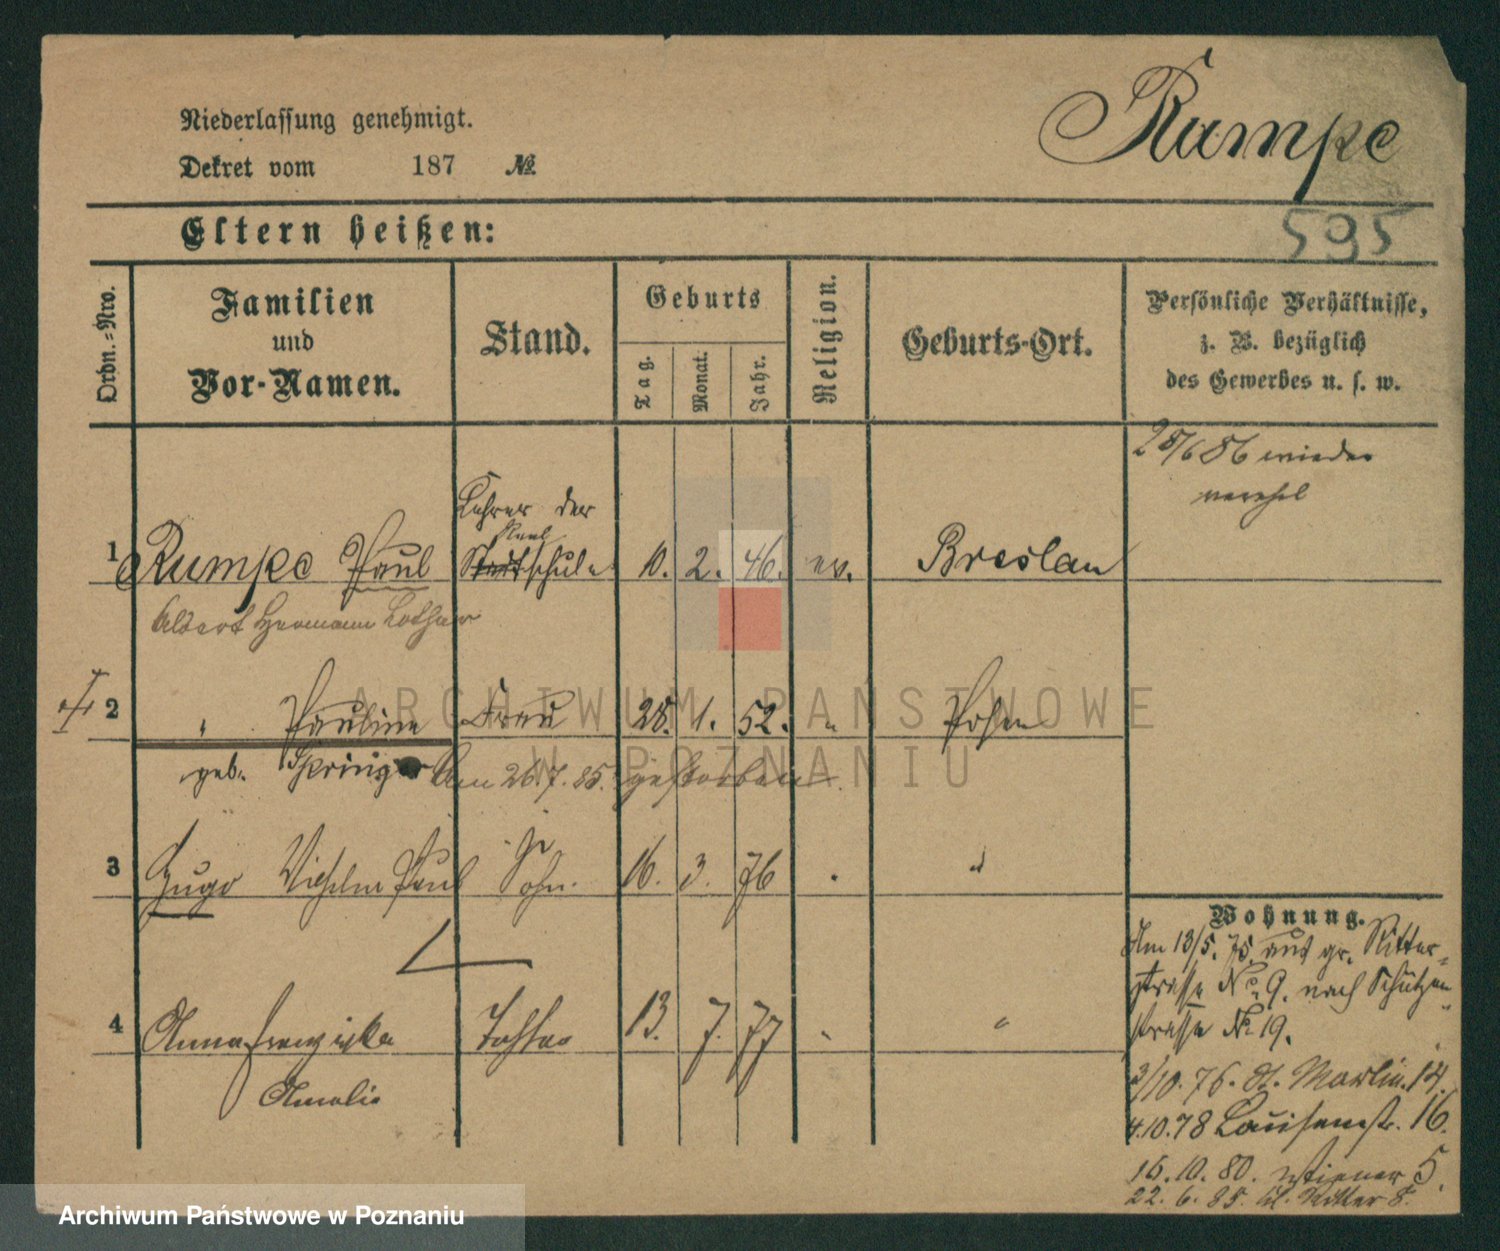 Niederlassung genehmigt.
Dekret vom 187 №
Rumpe
595
Eltern heißen:
Ordn.-Nro.
Familien
und
Vor-Namen.
Stand.
Geburts
Tag.
Monat.
Jahr.
Religion.
Geburts-Ort.
Persönliche Verhältnisse,
z. B. bezüglich
des Gewerbes u. s. w.
28/6 86 wieder
verehel
Lehrer der
Real
1 Rumpe Paul Stadtschule 10. 2. 46. ev. Breslau
Albert Hermann Lothar
2 " Pauline Frau 28. 1. 52. " Posen
geb. Springer Am 26.7.85. gestorben.
3 Hugo Wilhelm Paul Sohn. 16. 3. 76 " "
4 Anna Franziska Tochter 13. 7. 77 " "
Amalie
Wohnung.
Am 13/5. 75. aus gr. Ritter-
strasse No. 9. nach Schützen-
strasse No 19.
3/10. 76. St. Martin. 14.
4.10.78 Louisenstr. 16.
16. 10. 80. Wiener 5.
22. 6. 85. kl. Ritter 8.
ARCHIWUM PAŃSTWOWE
W POZNANIU
Archiwum Państwowe w Poznaniu